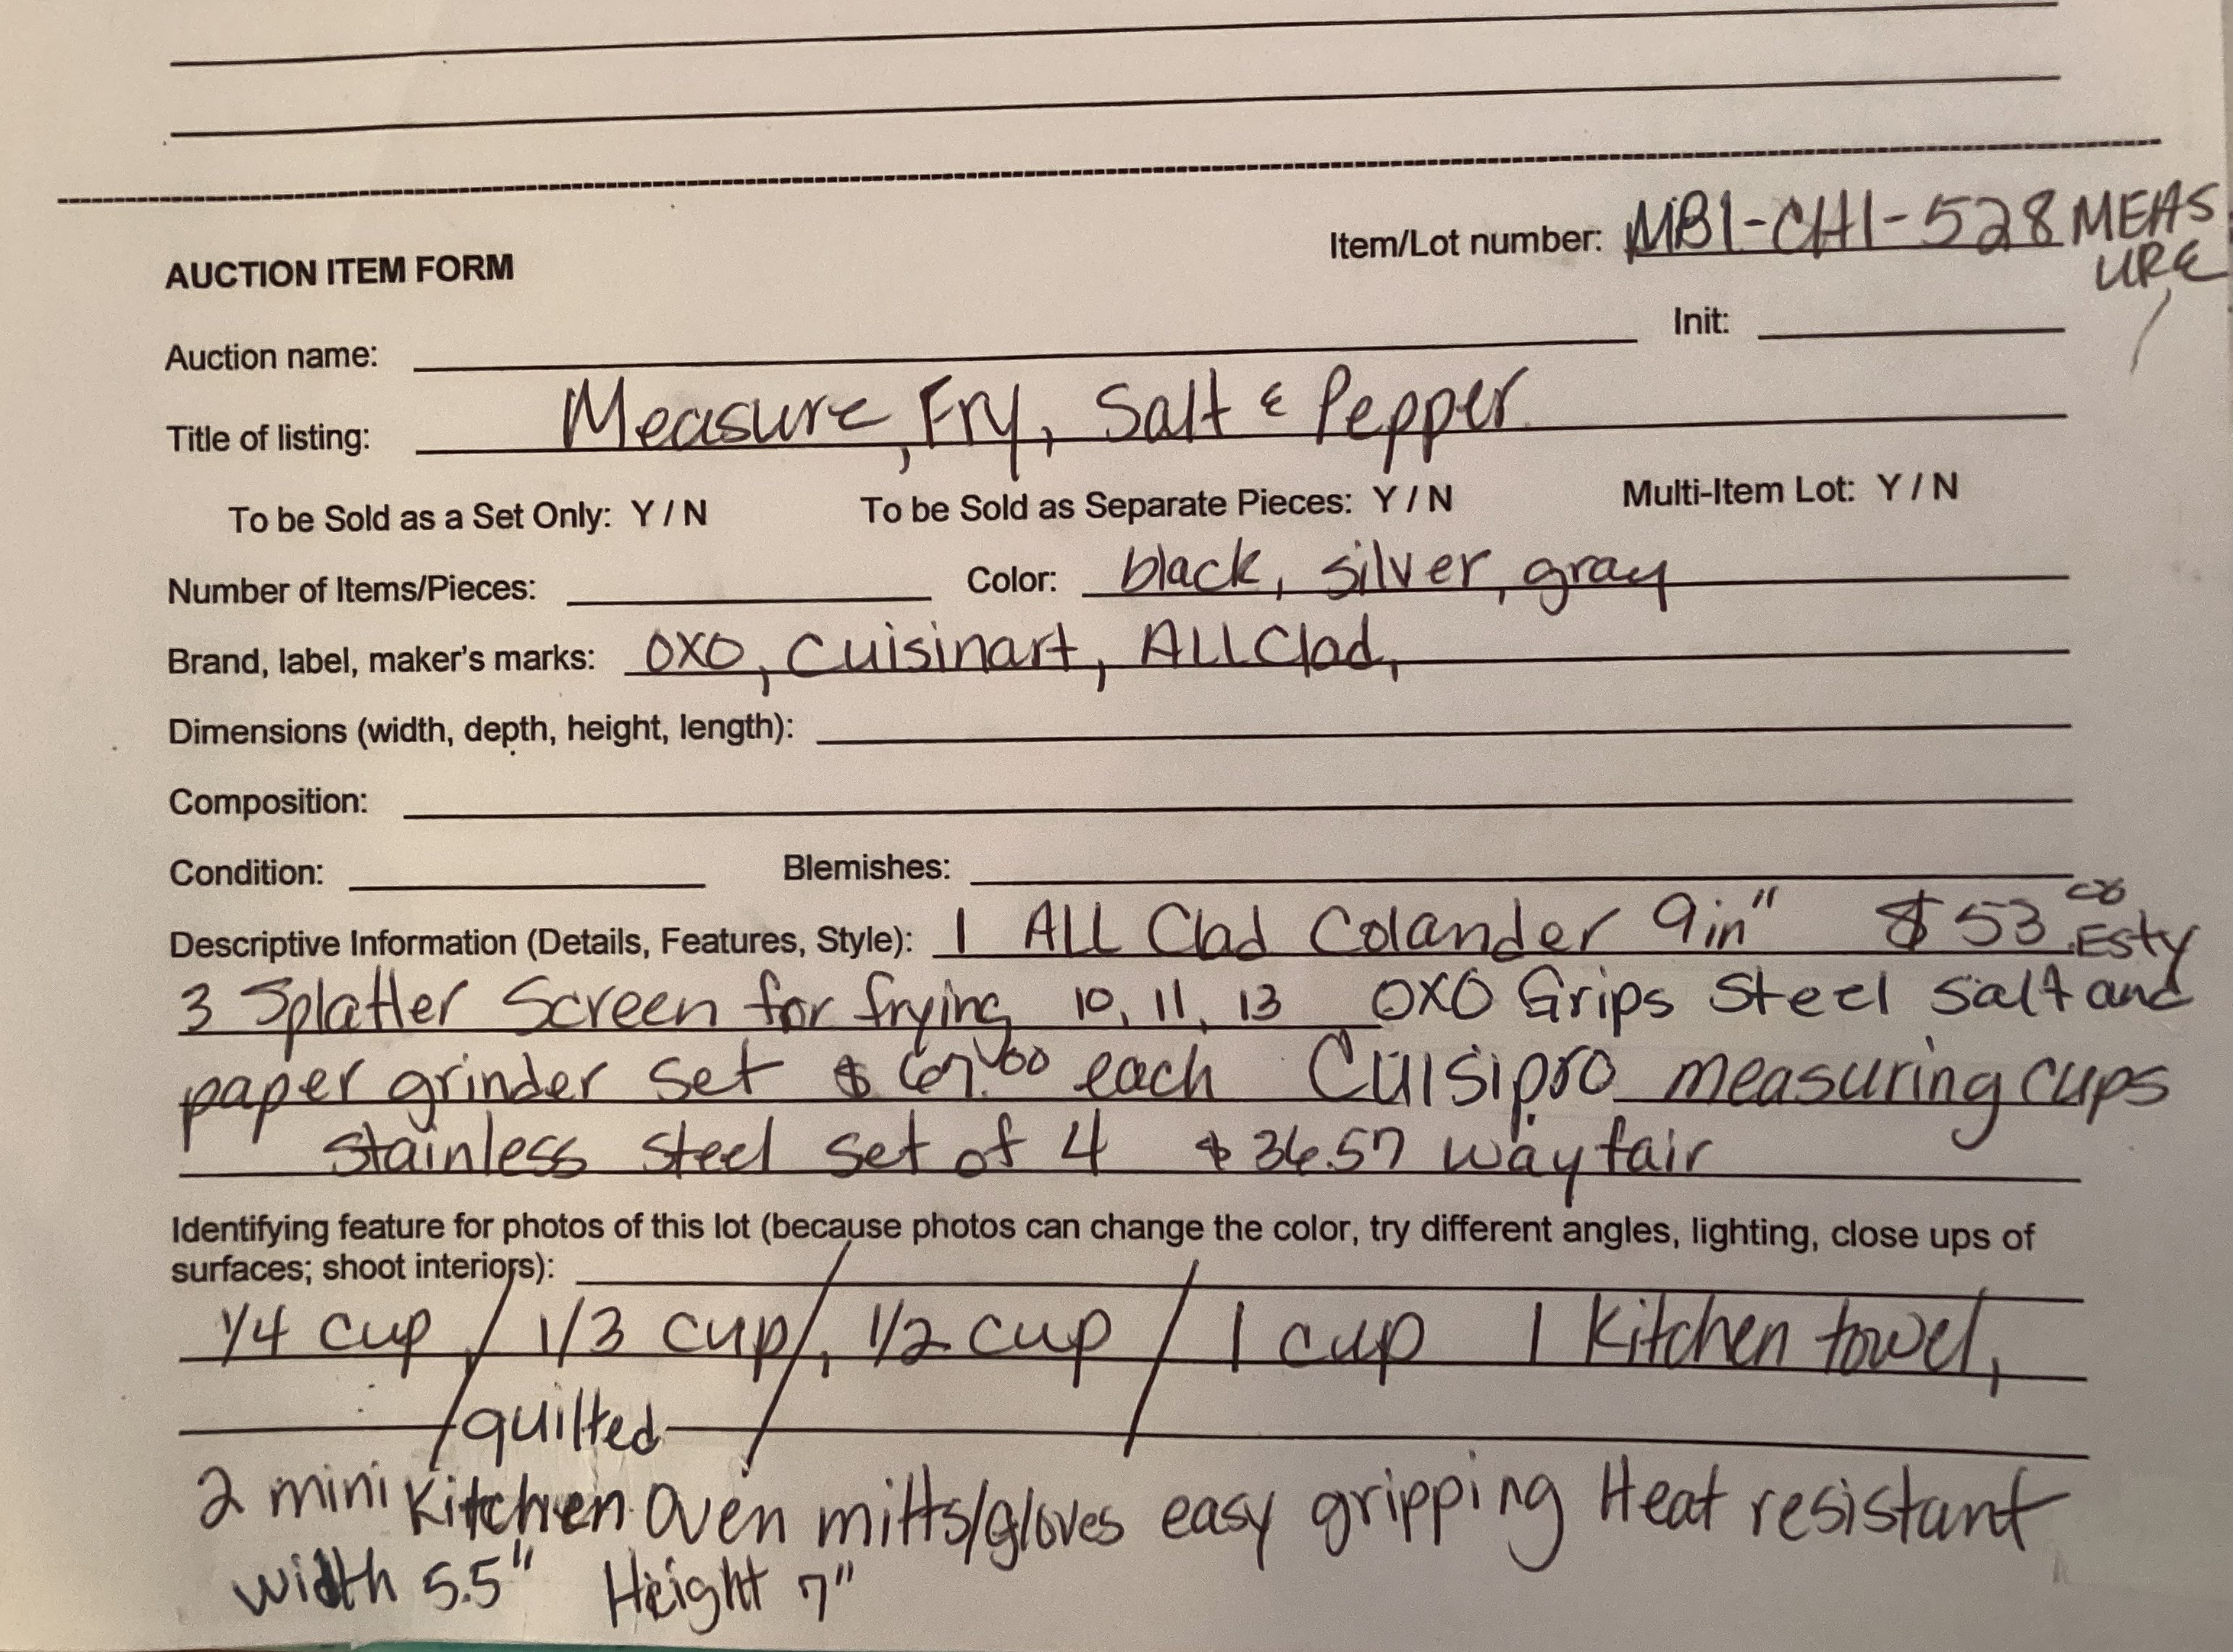 Item/Lot number: MB1-CH1-528 MEAS
URE
AUCTION ITEM FORM
Auction name: Init:
Title of listing: Measure, Fry, Salt & Pepper
To be Sold as a Set Only: Y / N To be Sold as Separate Pieces: Y / N Multi-Item Lot: Y / N
Number of Items/Pieces: Color: black, silver, gray
Brand, label, maker's marks: OXO, Cuisinart, ALLClad,
Dimensions (width, depth, height, length):
Composition:
Condition: Blemishes:
Descriptive Information (Details, Features, Style): 1 ALL Clad Colander 9in" $53.00 Esty
3 Splatter Screen for frying 10, 11, 13 OXO Grips Steel Salt and
paper grinder set $67.00 each Cuisipro measuring cups
stainless steel set of 4 $36.57 wayfair
Identifying feature for photos of this lot (because photos can change the color, try different angles, lighting, close ups of
surfaces; shoot interiors):
1/4 cup, / 1/3 cup/, 1/2 cup / 1 cup 1 Kitchen towel,
quilted
2 mini Kitchen Oven mitts/gloves easy gripping Heat resistant
width 5.5" Height 7"